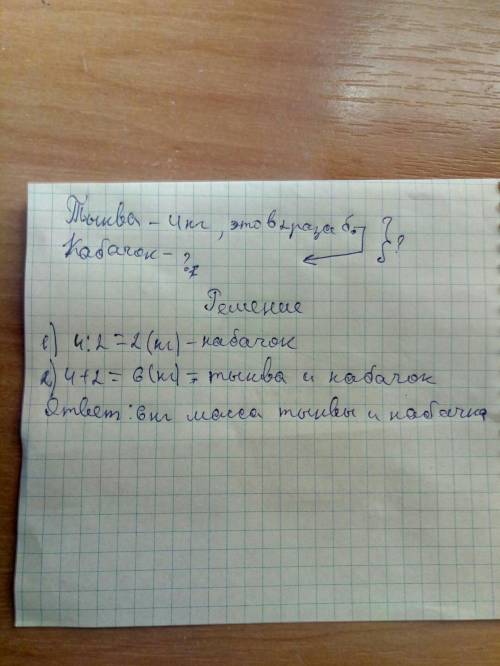 Тыква - 4кг, это в 2 раза б.
Кабачок - ? } ?
Решение
1) 4:2=2(кг) - кабачок
2) 4+2= 6(кг) - тыква и кабачок
Ответ: 6кг масса тыквы и кабачка